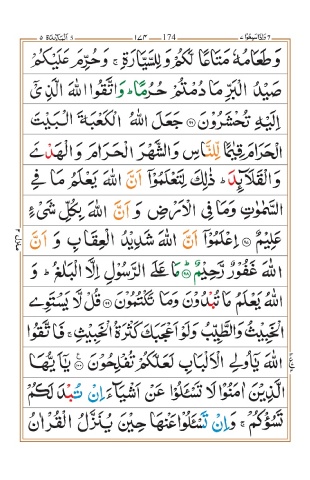 ٧ وَاِذَا سَمِعُوْا 174 ١٧٤ اَلْمَآئِدَة ٥
وَطَعَامُهٗ مَتَاعًا لَّكُمْ وَلِلسَّيَّارَةِ ۚ وَحُرِّمَ عَلَيْكُمْ
صَيْدُ الْبَرِّ مَا دُمْتُمْ حُرُمًا ؕ وَاتَّقُوا اللّٰهَ الَّذِيْۤ
اِلَيْهِ تُحْشَرُوْنَ ﴿۹۶﴾ جَعَلَ اللّٰهُ الْكَعْبَةَ الْبَيْتَ
الْحَرَامَ قِيٰمًا لِّلنَّاسِ وَالشَّهْرَ الْحَرَامَ وَالْهَدْيَ
وَالْقَلَآئِدَ ؕ ذٰلِكَ لِتَعْلَمُوْۤا اَنَّ اللّٰهَ يَعْلَمُ مَا فِي
السَّمٰوٰتِ وَمَا فِي الْاَرْضِ وَ اَنَّ اللّٰهَ بِكُلِّ شَيْءٍ
عَلِيْمٌ ﴿۹۷﴾ اِعْلَمُوْۤا اَنَّ اللّٰهَ شَدِيْدُ الْعِقَابِ وَ اَنَّ
اللّٰهَ غَفُوْرٌ رَّحِيْمٌ ﴿۹۸﴾ مَا عَلَى الرَّسُوْلِ اِلَّا الْبَلٰغُ ؕ وَ
اللّٰهُ يَعْلَمُ مَا تُبْدُوْنَ وَمَا تَكْتُمُوْنَ ﴿۹۹﴾ قُلْ لَّا يَسْتَوِي
الْخَبِيْثُ وَالطَّيِّبُ وَلَوْ اَعْجَبَكَ كَثْرَةُ الْخَبِيْثِ ۚ فَاتَّقُوا
اللّٰهَ يٰۤاُولِي الْاَلْبَابِ لَعَلَّكُمْ تُفْلِحُوْنَ ﴿۱۰۰﴾ يٰۤاَيُّهَا
الَّذِيْنَ اٰمَنُوْا لَا تَسْـَٔلُوْا عَنْ اَشْيَآءَ اِنْ تُبْدَ لَكُمْ
تَسُؤْكُمْ ۚ وَاِنْ تَسْـَٔلُوْا عَنْهَا حِيْنَ يُنَزَّلُ الْقُرْاٰنُ